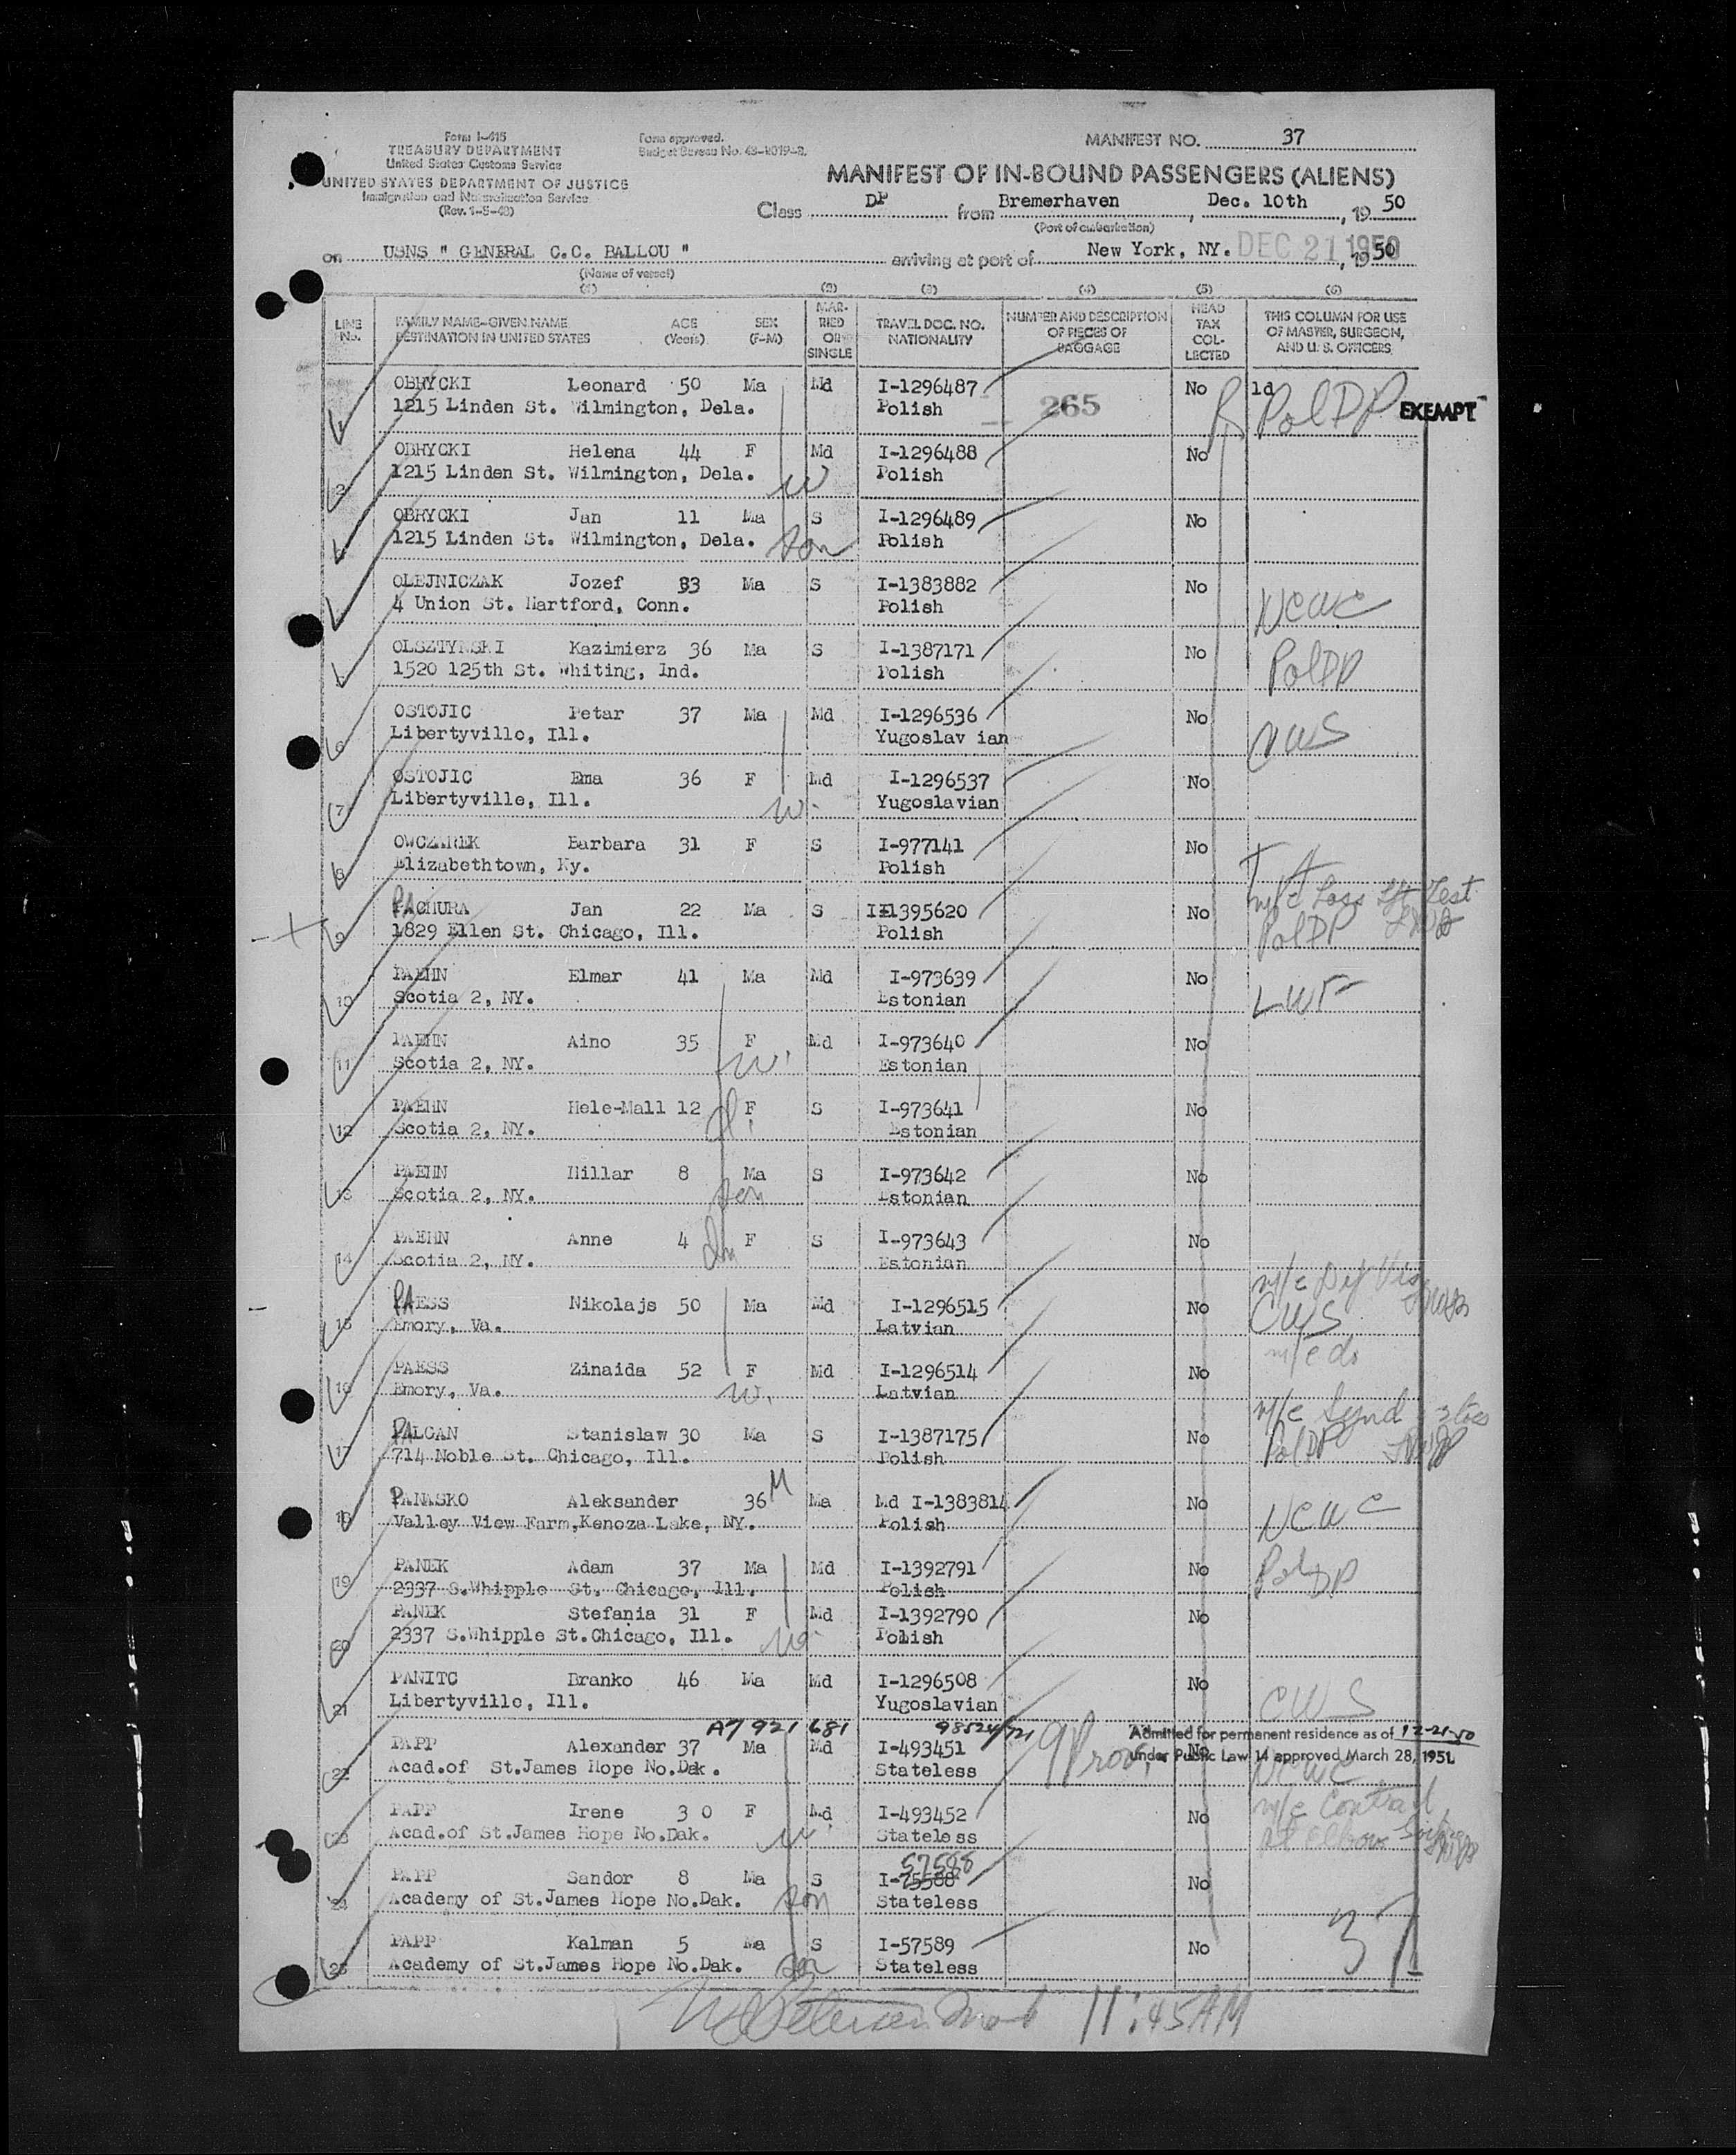 Form I-415
TREASURY DEPARTMENT
United States Customs Service
UNITED STATES DEPARTMENT OF JUSTICE
Immigration and Naturalization Service
(Rev. 1-5-48)
Form approved.
Budget Bureau No. 43-R019-2.
MANIFEST NO. 37
MANIFEST OF IN-BOUND PASSENGERS (ALIENS)
Class DP from Bremerhaven, Dec. 10th, 19 50
(Port of embarkation)
on USNS " GENERAL C.C. BALLOU " arriving at port of New York, NY. DEC 21 1950, 19 50
(Name of vessel)
(1) (2) (3) (4) (5) (6)
LINE No. FAMILY NAME-GIVEN NAME DESTINATION IN UNITED STATES AGE (Years) SEX (F-M) MARRIED OR SINGLE TRAVEL DOC. NO. NATIONALITY NUMBER AND DESCRIPTION OF PIECES OF BAGGAGE HEAD TAX COLLECTED THIS COLUMN FOR USE OF MASTER, SURGEON, AND U. S. OFFICERS
1 OBRYCKI Leonard 50 Ma Md I-1296487 265 No 1d PolDP EXEMPT
1215 Linden St. Wilmington, Dela. Polish
2 OBRYCKI Helena 44 F Md I-1296488 No
1215 Linden St. Wilmington, Dela. w Polish
OBRYCKI Jan 11 Ma S I-1296489 No
1215 Linden St. Wilmington, Dela. son Polish
OLEJNICZAK Jozef 33 Ma S I-1383882 No
4 Union St. Hartford, Conn. Polish NCWC
OLSZTYNSKI Kazimierz 36 Ma S I-1387171 No
1520 125th St. Whiting, Ind. Polish PolDP
6 OSTOJIC Petar 37 Ma Md I-1296536 No
Libertyville, Ill. Yugoslav ian
7 OSTOJIC Ema 36 F Md I-1296537 No
Libertyville, Ill. w. Yugoslavian
8 OWCZAREK Barbara 31 F S I-977141 No
Elizabethtown, Ky. Polish
9 PACHURA Jan 22 Ma S I-1395620 No
1829 Ellen St. Chicago, Ill. Polish PolDP
10 PAEHN Elmar 41 Ma Md I-973639 No
Scotia 2, NY. Estonian LWF
11 PAEHN Aino 35 F Md I-973640 No
Scotia 2, NY. w. Estonian
12 PAEHN Hele-Mall 12 F S I-973641 No
Scotia 2, NY. Estonian
13 PAEHN Hillar 8 Ma S I-973642 No
Scotia 2, NY. son Estonian
14 PAEHN Anne 4 F S I-973643 No
Scotia 2, NY. Estonian
15 PAESS Nikolajs 50 Ma Md I-1296515 No m/c Def Vis
Emory, Va. Latvian CWS
16 PAESS Zinaida 52 F Md I-1296514 No m/c do
Emory, Va. w. Latvian
17 PALCAN Stanislaw 30 Ma S I-1387175 No
714 Noble St. Chicago, Ill. Polish PolDP
18 PANASKO Aleksander 36 M Ma Md I-1383814 No
Valley View Farm,Kenoza Lake, NY. Polish NCWC
19 PANEK Adam 37 Ma Md I-1392791 No
2337 S.Whipple St. Chicago, Ill. Polish PolDP
20 PANEK Stefania 31 F Md I-1392790 No
2337 S.Whipple St.Chicago, Ill. Polish
21 PANITC Branko 46 Ma Md I-1296508 No
Libertyville, Ill. Yugoslavian CWS
A7 921 681
Admitted for permanent residence as of 12-21-50
under Public Law 14 approved March 28, 1951.
22 PAPP Alexander 37 Ma Md I-493451 No
Acad.of St.James Hope No.Dak. Stateless NCWC
23 PAPP Irene 3 0 F Md I-493452 No
Acad.of St.James Hope No.Dak. w. Stateless
57588
24 PAPP Sandor 8 Ma S I-75588 No
Academy of St.James Hope No.Dak. son Stateless
25 PAPP Kalman 5 Ma S I-57589 No
Academy of St.James Hope No.Dak. son Stateless
37
11:45AM